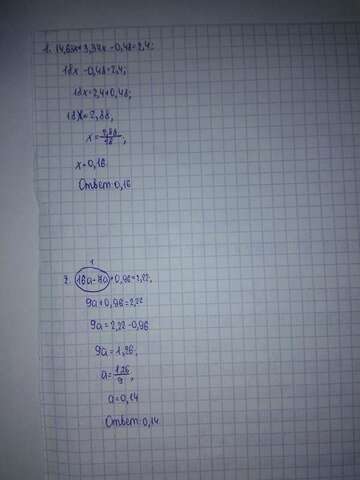 1. 14,63x+3,37x-0,48=2,4;
18x-0,48=2,4;
18x=2,4+0,48;
18x=2,88,
x=2,88/18;
x=0,16
Ответ: 0,16
1
2. 16a-7a+0,96=2,22,
9a+0,96=2,22
9a=2,22-0,96
9a=1,26,
a=1,26/9;
a=0,14
Ответ: 0,14